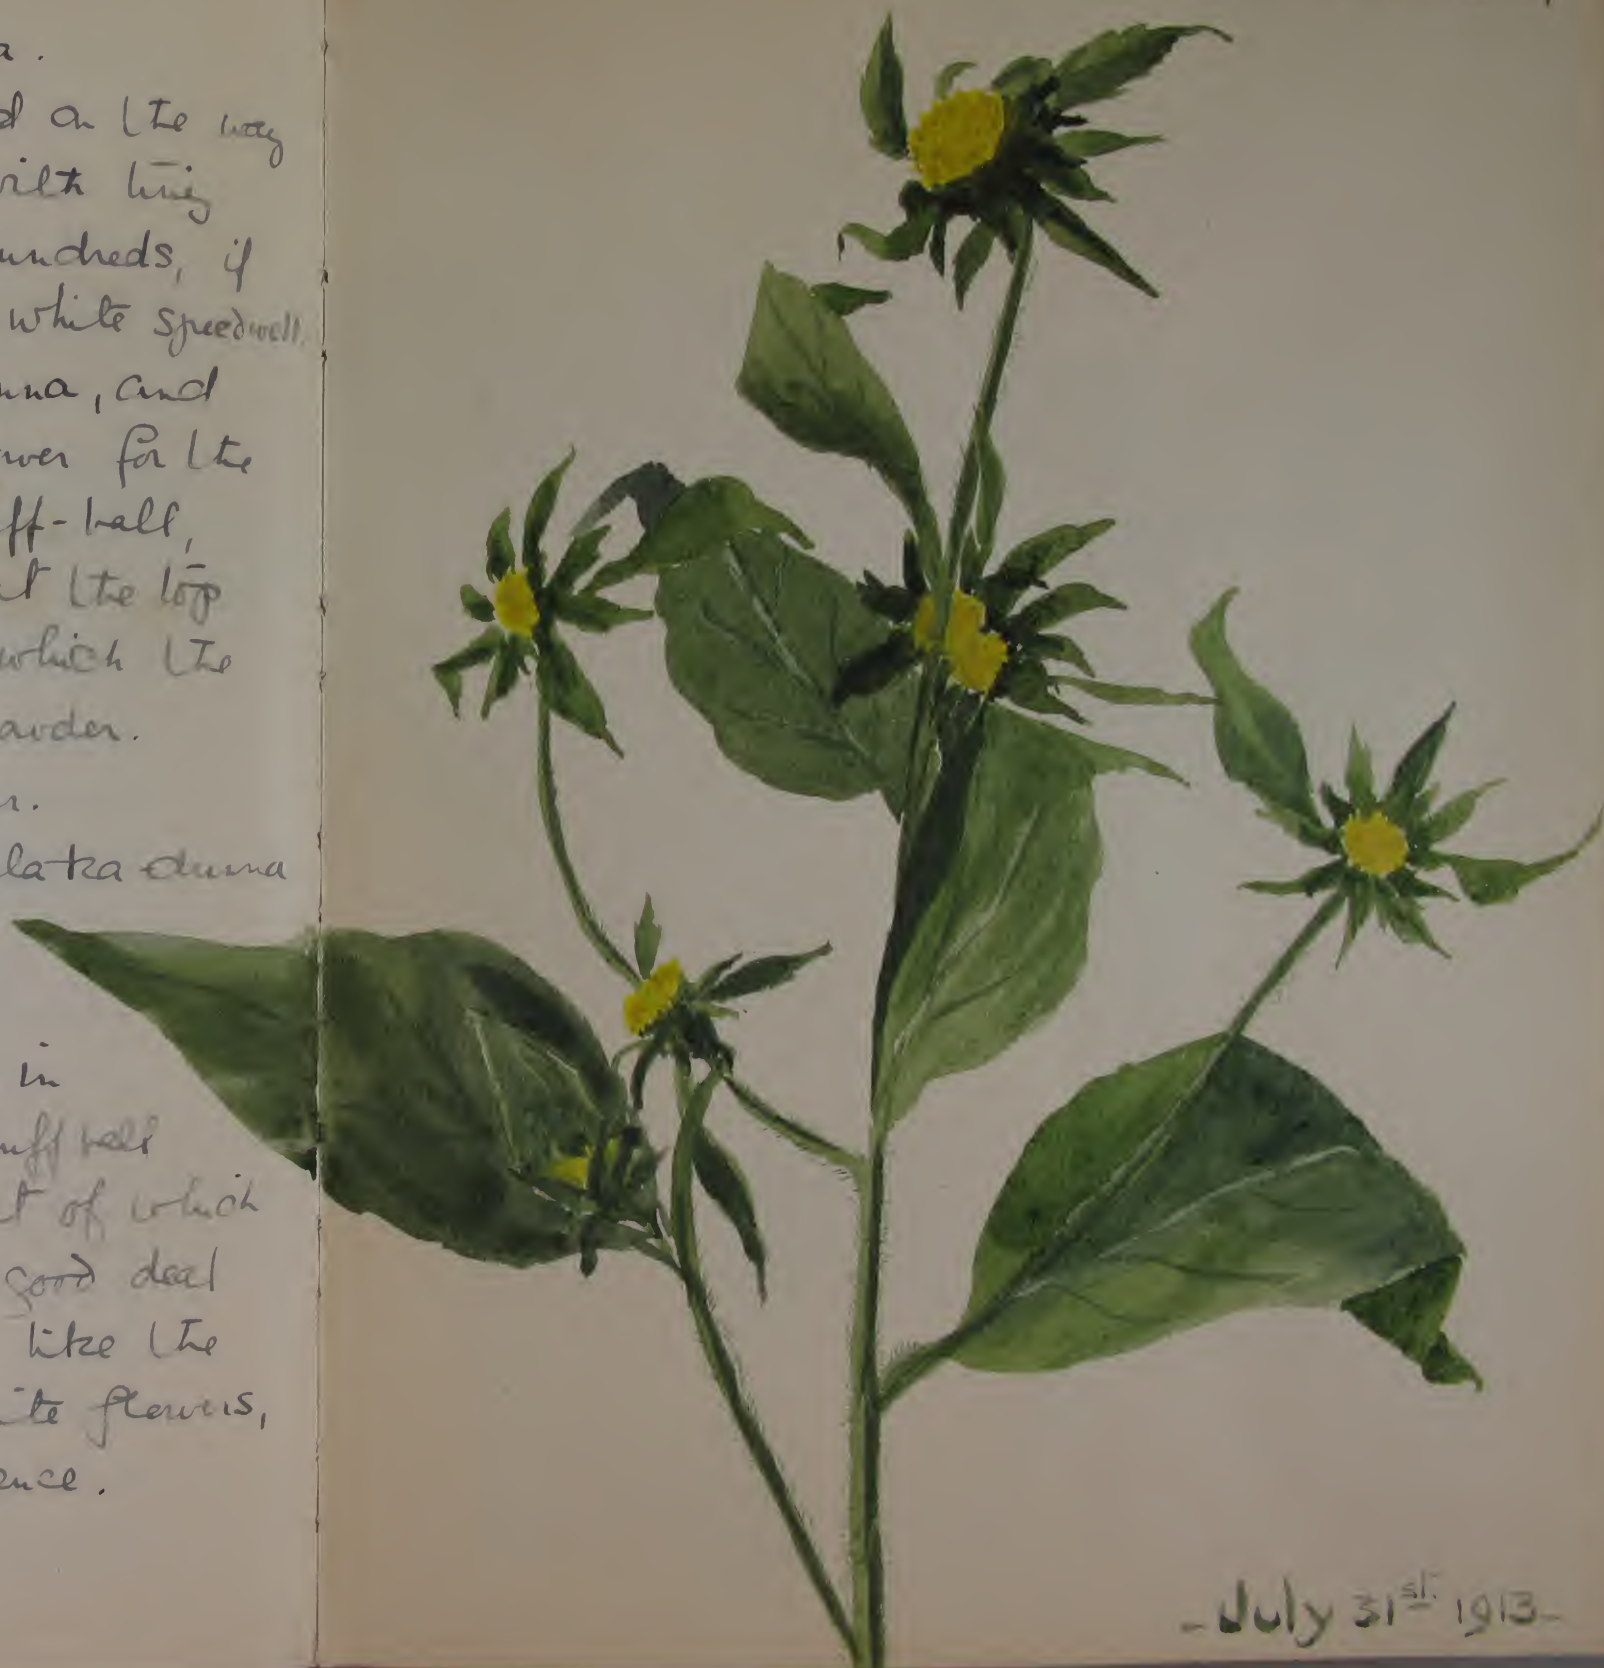 a.
d on the way
with tiny
undreds, if
white speedwell
nna, and
wer for the
ff-ball,
t the top
which the
arder.
r.
duma
in
uff ball
t of which
good deal
like the
ite flowers,
ence.
- July 31st. 1913 -